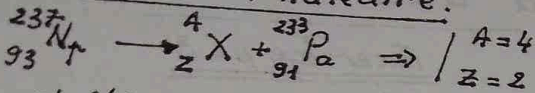 ²³⁷₉₃Np → ᴬ_Z X + ²³³₉₁Pa ⇒ | A = 4
Z = 2